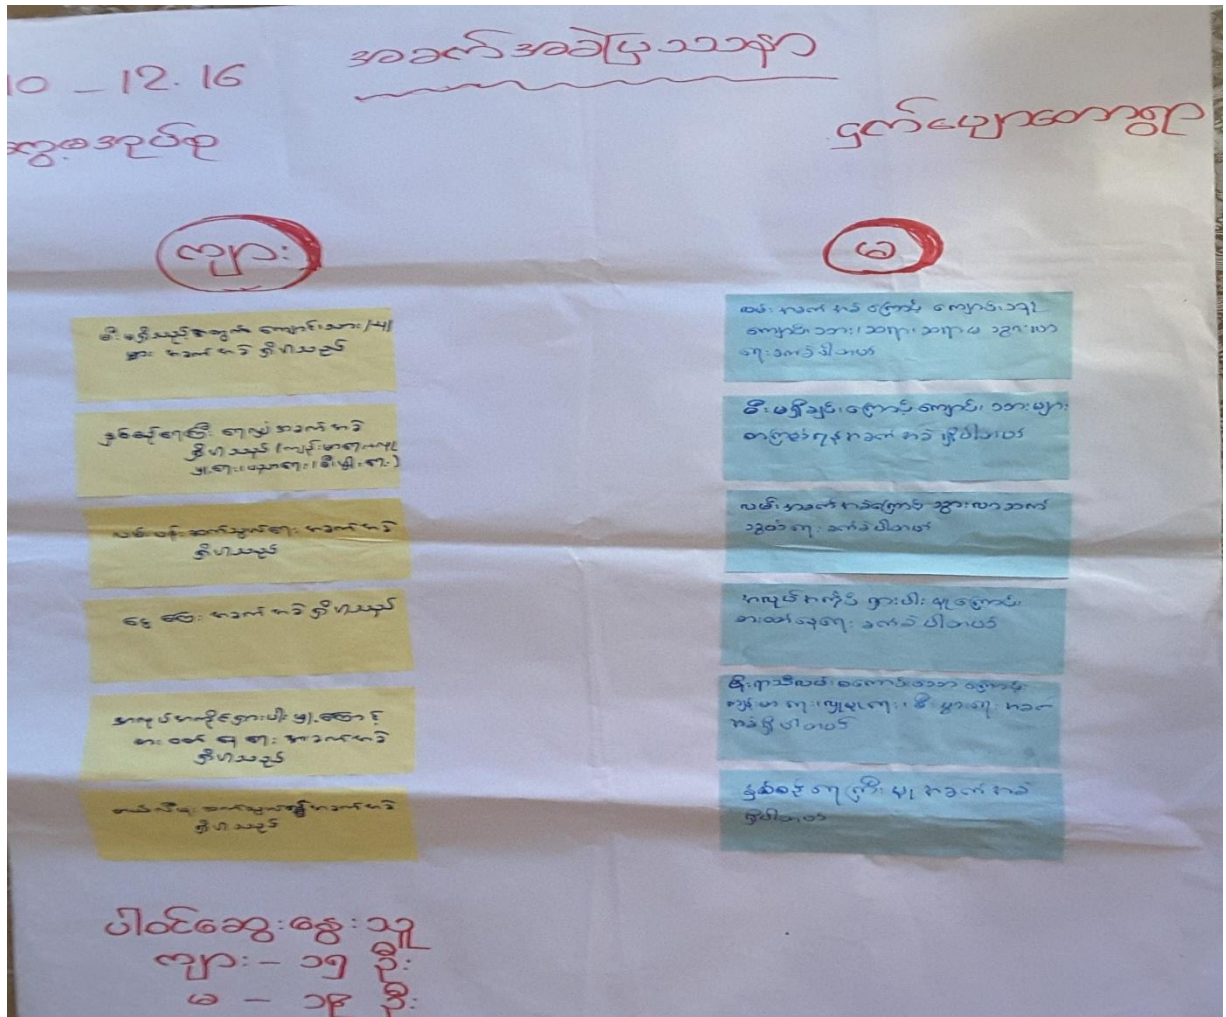 အခက်အခဲပြဿနာ
10 - 12. 16
ငှက်ပျောတောရွာ
ကျား
မ
မီးမရှိသည့်အတွက် ကျောင်းသား/သူ
များ အခက်အခဲ ရှိပါသည်
နှစ်စဉ်ရေကြီး ရေလျှံအခက်အခဲ
ရှိပါသည် (ကျန်းမာရေး၊
ပညာရေး၊ စီးပွါးရေး)
လမ်းပန်းဆက်သွယ်ရေး အခက်အခဲ
ရှိပါသည်
ငွေကြေး အခက်အခဲ ရှိပါသည်
အလုပ်အကိုင်ရှားပါးမှုကြောင့်
စားဝတ်နေရေး အခက်အခဲ
ရှိပါသည်
ဆက်သွယ်မှုအခက်အခဲ
ရှိပါသည်
လမ်းအခက်အခဲကြောင့် ကျောင်းသူ၊
ကျောင်းသား၊ ဆရာ၊ ဆရာမ သွားလာ
ရေးခက်ခဲပါတယ်
မီးမရှိခြင်းကြောင့် ကျောင်းသားများ
စာကြည့်ရန်အခက်အခဲရှိပါတယ်
လမ်းအခက်အခဲကြောင့် သွားလာဆက်
သွယ်ရေး ခက်ခဲပါတယ်
အလုပ်အကိုင် ရှားပါးမှုကြောင့်
စားဝတ်နေရေး ခက်ခဲပါတယ်
မိုးရာသီလမ်းမကောင်းသောကြောင့်
ကျန်းမာရေး၊ လူမှုရေး၊ စီးပွားရေး အခက်
အခဲရှိပါတယ်
နှစ်စဉ် ရေကြီးမှု အခက်အခဲ
ရှိပါတယ်
ပါဝင်ဆွေးနွေးသူ
ကျား - ၁၅ ဦး
မ - ၁၉ ဦး